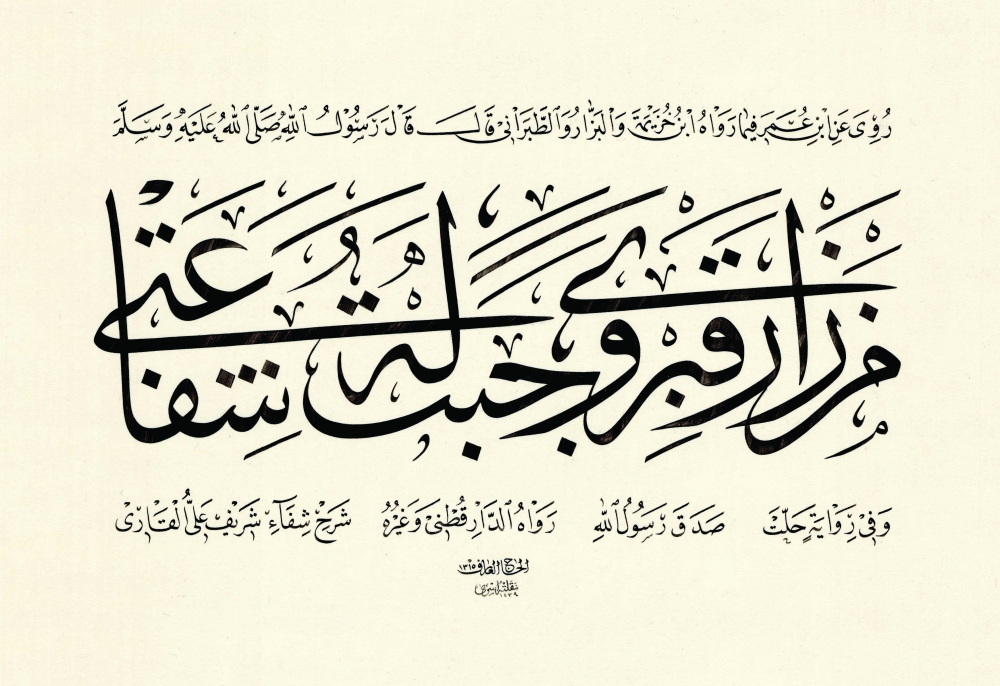 رُوِىَ عَنِ ابْنِ عُمَرَ فِيمَا رَوَاهُ ابْنُ خُزَيْمَةَ وَالْبَزَّارُ وَالطَّبَرَانِىُّ قَالَ قَالَ رَسُولُ اللهِ صَلَّى اللهُ عَلَيْهِ وَسَلَّمَ
مَنْ زَارَ قَبْرِى وَجَبَتْ لَهُ شَفَاعَتِى
وَفِى رِوَايَةٍ حَلَّتْ صَدَقَ رَسُولُ اللهِ رَوَاهُ الدَّارَقُطْنِى وَغَيْرُهُ شَرْحُ شِفَاءِ شَرِيفْ عَلِىُّ الْقَارِى
الحاج العارف ١٣١٥
نقلته
١٤٣٩